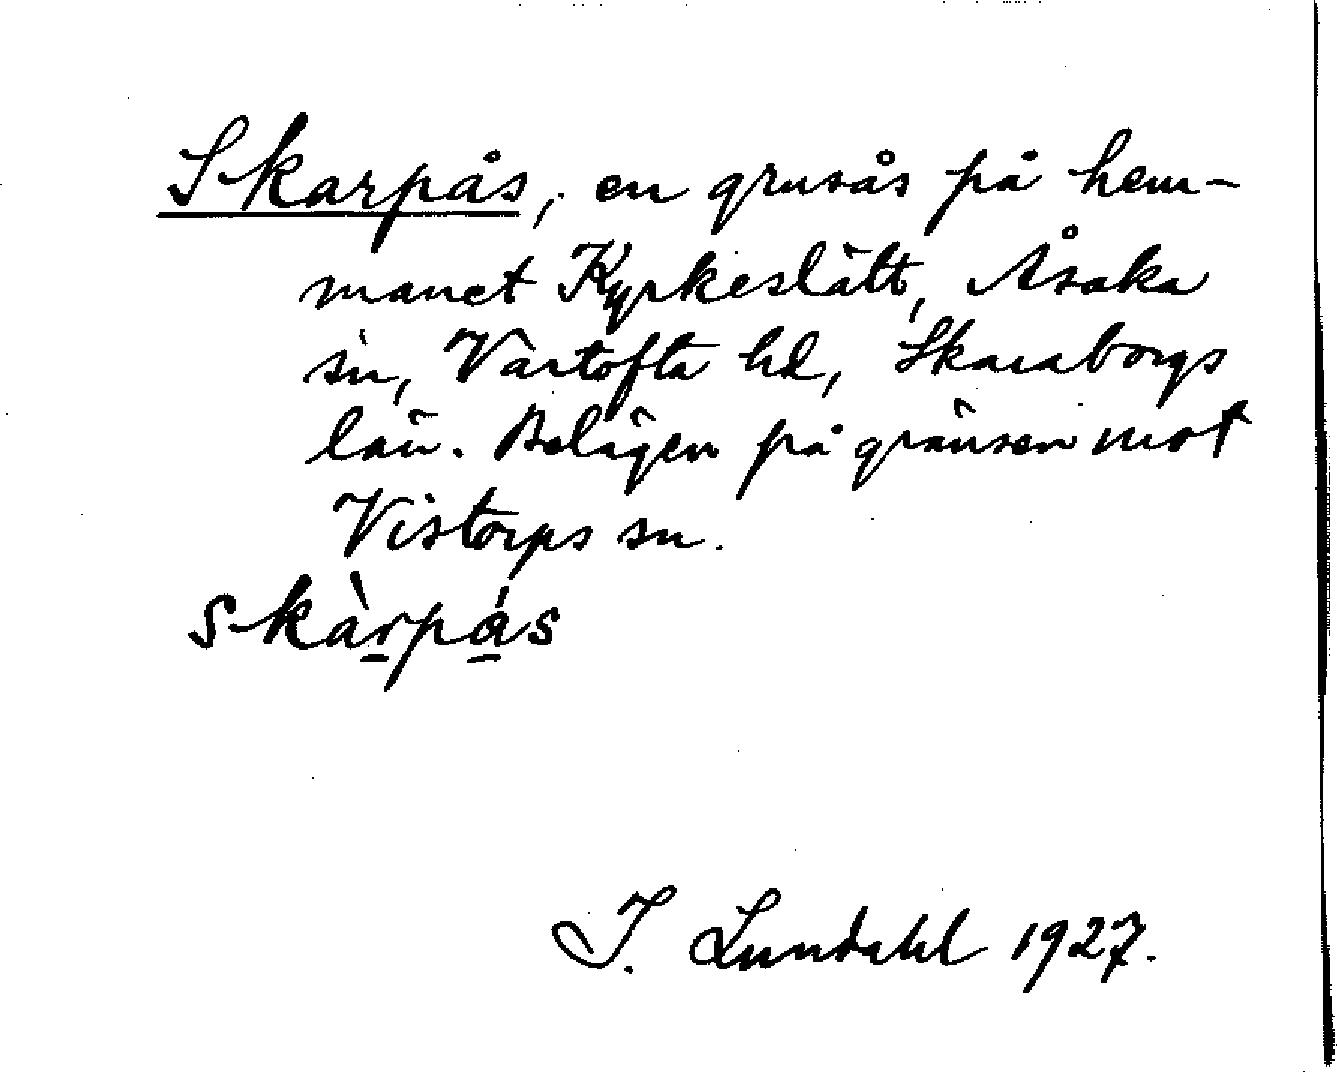 Skarpås, en grusås på hem-
manet Kyrkeslätt, Åsaka
sn, Vartofta hd, Skaraborgs
län. Belägen på gränsen mot
Vistorps sn.
skàr̲pá̲s
I. Lundahl 1927.